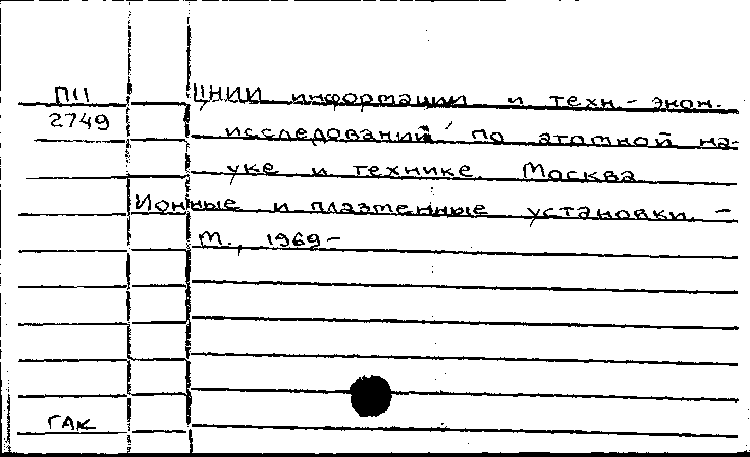 ПП
2749
ЦНИИ информации и техн-экон.
исследований по атомной на-
уке и технике. Москва
Ионные и плазменные установки. -
М., 1969-
ГАК